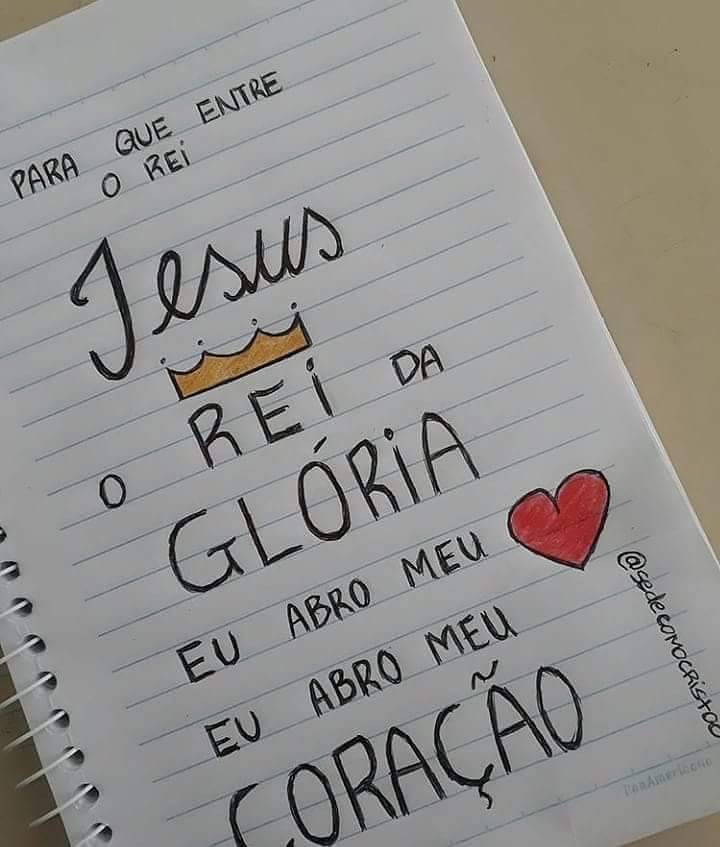 PARA QUE ENTRE
O REi
Jesus
O REi DA
GLÓRiA
EU ABRO MEU
EU ABRO MEU
CORAÇÃO
PanAmericano